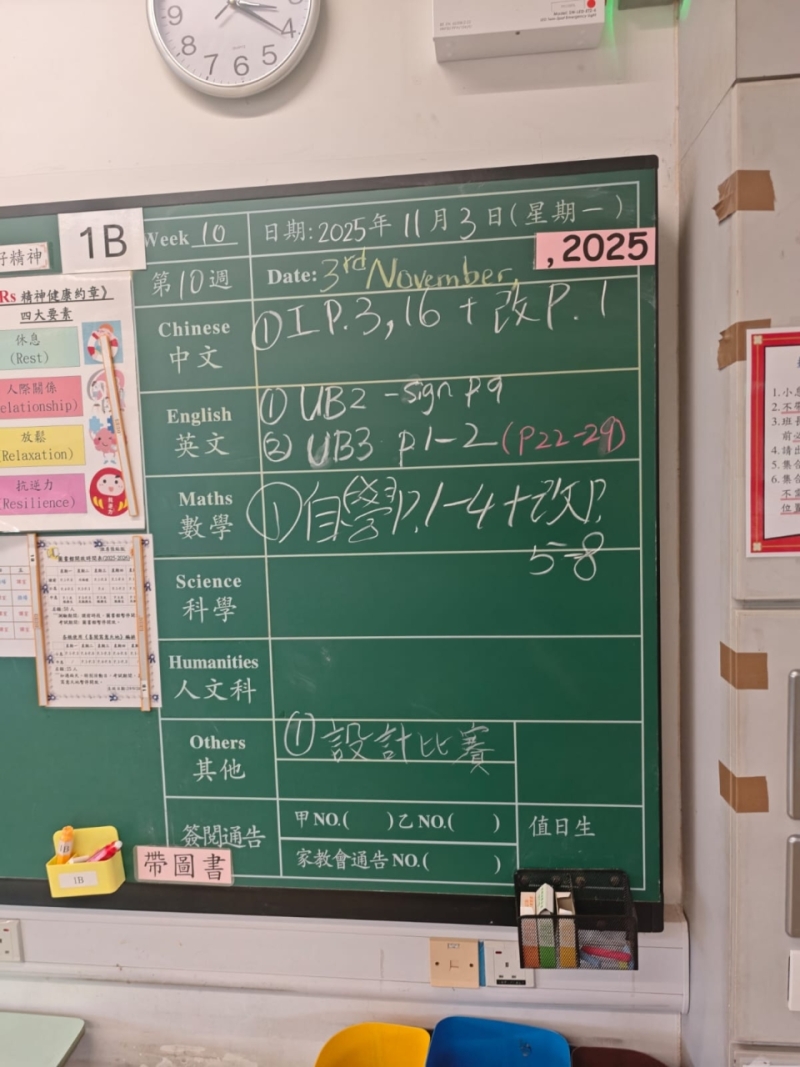 9
8
7
6
5
4
好精神
1B
Week 10
日期: 2025年 11月 3日(星期一)
第10週
Date: 3rd November, , 2025
Rs 精神健康約章》
四大要素
休息
(Rest)
人際關係
elationship)
放鬆
(Relaxation)
抗逆力
(Resilience)
Chinese
中文
① 工 P.3, 16 + 改 P. 1
English
英文
① UB2 - sign p9
② UB3 p1-2 (P22-29)
Maths
數學
① 自學 P.1-4 + 改 P.
5-8
Science
科學
Humanities
人文科
Others
其他
① 設計比賽
簽閱通告
甲NO.( )乙NO.( )
家教會通告NO.( )
值日生
帶圖書
1B
1.小息
2.不
3.班長
前
4.請出
5.集合
6.集合
不
位置